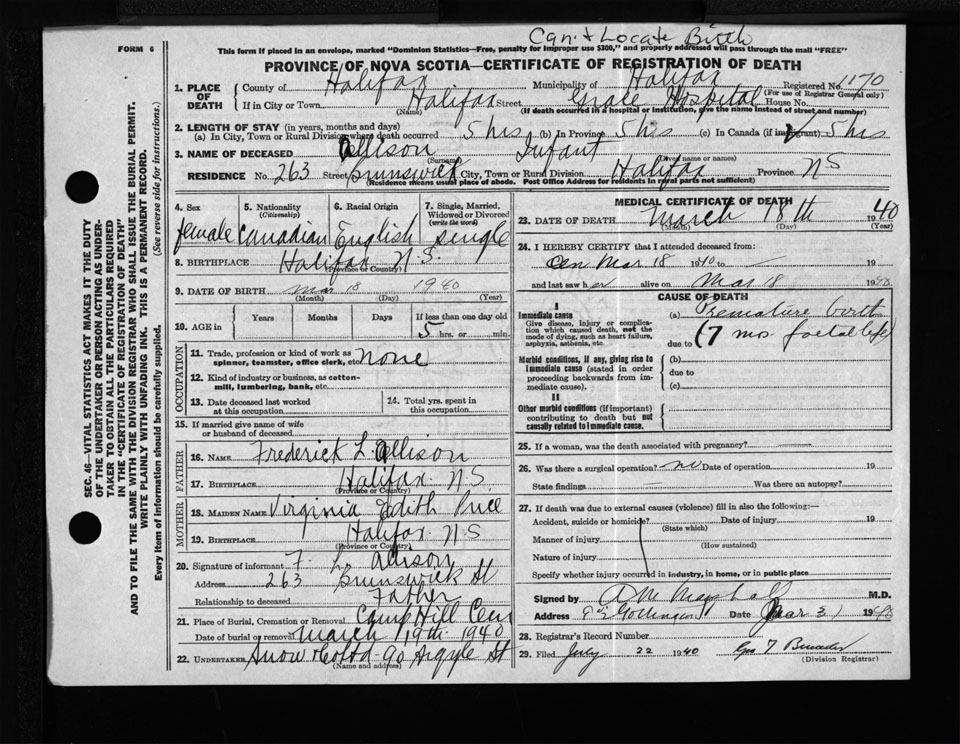 Can't Locate Birth
FORM 6
This form if placed in an envelope, marked "Dominion Statistics—Free, penalty for improper use $300," and properly addressed will pass through the mail "FREE"
PROVINCE OF NOVA SCOTIA—CERTIFICATE OF REGISTRATION OF DEATH
1. PLACE OF DEATH
County of Halifax Municipality of Halifax Registered No. 1170
(For use of Registrar General only)
If in City or Town Halifax Street Grace Hospital House No.
(Name) (If death occurred in a hospital or institution, give the name instead of street and number)
2. LENGTH OF STAY (in years, months and days)
(a) In City, Town or Rural Division where death occurred 5 hrs (b) In Province 5 hrs (c) In Canada (if immigrant) 5 hrs
3. NAME OF DECEASED Allison Infant
(Surname) (Given name or names)
RESIDENCE No. 263 Street Brunswick City, Town or Rural Division Halifax Province N S
(Residence means usual place of abode. Post Office Address for residents in rural parts not sufficient)
4. Sex female
5. Nationality (Citizenship) Canadian
6. Racial Origin English
7. Single, Married, Widowed or Divorced (write the word) single
8. BIRTHPLACE Halifax N.S.
(Province or Country)
9. DATE OF BIRTH Mar 18 1940
(Month) (Day) (Year)
10. AGE in Years Months Days If less than one day old
5 hrs. or min.
OCCUPATION
11. Trade, profession or kind of work as spinner, teamster, office clerk, etc. none
12. Kind of industry or business, as cotton-mill, lumbering, bank, etc.
13. Date deceased last worked at this occupation
14. Total yrs. spent in this occupation
15. If married give name of wife or husband of deceased
FATHER
16. NAME Frederick L. Allison
17. BIRTHPLACE Halifax N S
(Province or Country)
MOTHER
18. MAIDEN NAME Virginia Edith Price
19. BIRTHPLACE Halifax N.S
(Province or Country)
20. Signature of informant F. L. Allison
Address 263 Brunswick St
Relationship to deceased Father
21. Place of Burial, Cremation or Removal Camp Hill Cem
Date of burial or removal March 19th 1940
22. UNDERTAKER Snow & Co Ltd 90 Argyle St
(Name and address)
MEDICAL CERTIFICATE OF DEATH
23. DATE OF DEATH March 18th 1940
(Month) (Day) (Year)
24. I HEREBY CERTIFY that I attended deceased from:
on Mar 18 1940 to — 19
and last saw her alive on Mar 18 1940
CAUSE OF DEATH
I
Immediate cause
Give disease, injury or complication which caused death, not the mode of dying, such as heart failure, asphyxia, asthenia, etc.
(a) Premature birth
due to (7 mos foetal life)
Morbid conditions, if any, giving rise to Immediate cause (stated in order proceeding backwards from immediate cause).
(b)
due to
(c)
II
Other morbid conditions (if important) contributing to death but not causally related to Immediate cause.
25. If a woman, was the death associated with pregnancy?
26. Was there a surgical operation? no Date of operation 19
State findings — Was there an autopsy?
27. If death was due to external causes (violence) fill in also the following:—
Accident, suicide or homicide? Date of injury 19
(State which)
Manner of injury
(How sustained)
Nature of injury
Specify whether injury occurred in industry, in home, or in public place
Signed by A M Marshall M.D.
Address Gottingen Date Mar 31 1940
28. Registrar's Record Number
29. Filed July 22 1940 Geo T
(Division Registrar)
SEC. 46—VITAL STATISTICS ACT MAKES IT THE DUTY
OF THE UNDERTAKER OR PERSON ACTING AS UNDER-
TAKER TO OBTAIN ALL THE PARTICULARS REQUIRED
IN THE "CERTIFICATE OF REGISTRATION OF DEATH"
AND TO FILE THE SAME WITH THE DIVISION REGISTRAR WHO SHALL ISSUE THE BURIAL PERMIT.
WRITE PLAINLY WITH UNFADING INK. THIS IS A PERMANENT RECORD.
Every item of information should be carefully supplied. (See reverse side for instructions.)